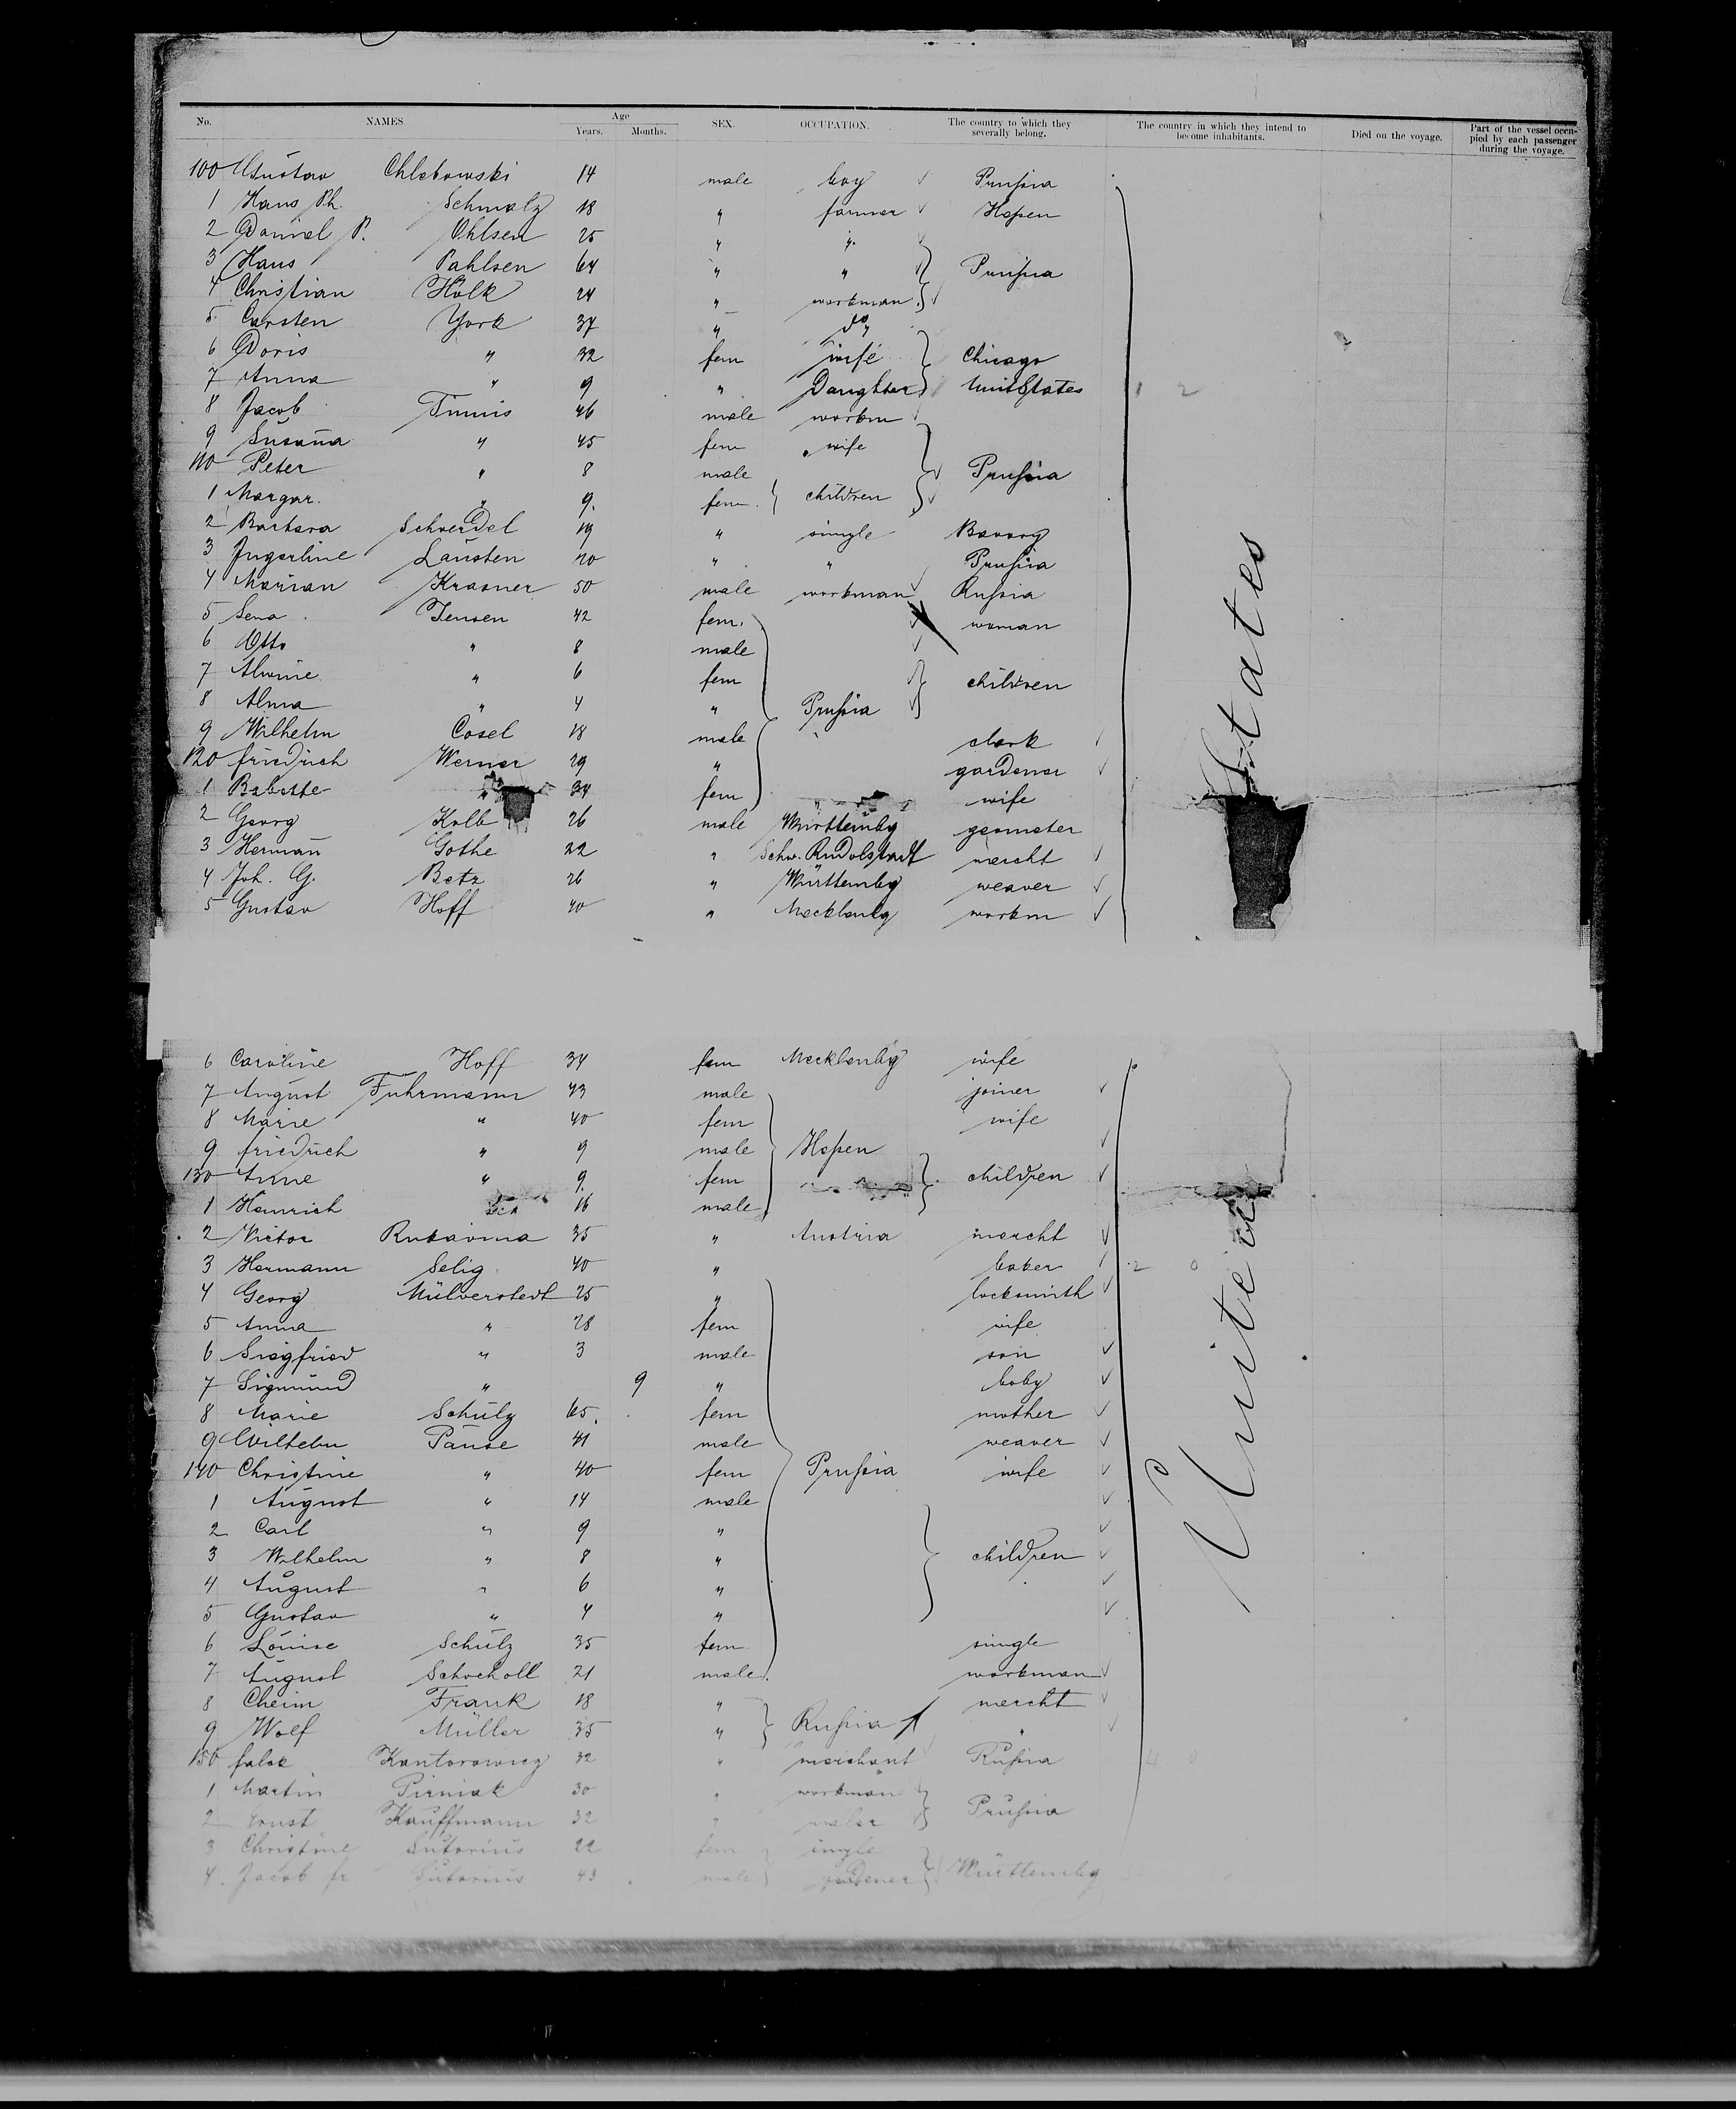 No. NAMES. Age Years. Months. SEX. OCCUPATION. The country to which they severally belong. The country in which they intend to become inhabitants. Died on the voyage. Part of the vessel occupied by each passenger during the voyage.
100 Gustav Chlebowski 14 male boy Prussia
1 Hans Ph. Schmalz 18 " farmer Hessen
2 Daniel P. Ohlsen 25 " "
3 Hans Pahlsen 64 " " Prussia
4 Christian Holk 24 " workman
5 Carsten York 37 " do "
6 Doris " 32 fem wife Chicago
7 Anna " 9 " Daughter Unit States 1 2
8 Jacob Tinnis 46 male workm
9 Susanna " 45 fem " wife
110 Peter " 8 male Prussia
1 Margar. " 9. fem. children
2 Barbara Schverdel 19 " single Bavary
3 Ingerline Lausten 20 " " Prussia
4 Marian Krasner 50 male workman Russia
5 Lena Jensen 42 fem. woman
6 Otto " 8 male
7 Alwine " 6 fem children
8 Alma " 4 " Prussia
9 Wilhelm Cosel 18 male clerk
120 Friedrich Werner 29 " gardener
1 Babette " 34 fem " wife
2 Georg Kolb 26 male Württembg geometer
3 Hermann Gothe 22 " Schw. Rudolstadt mercht
4 Joh. G. Betz 26 " Württembg weaver
5 Gustav Hoff 40 " Mecklenbg workm
6 Caroline Hoff 34 fem Mecklenbg wife
7 August Fuhrmann 43 male joiner
8 Marie " 40 fem wife
9 Friedrich " 9 male Hessen
130 Anne " 9. fem children
1 Heinrich 16 male
2 Victor Rukavina 35 " Austria mercht
3 Hermann Selig 40 " baker 2 0
4 Georg Mülverstedt 25 " locksmith
5 Anna " 28 fem wife
6 Siegfried " 3 male son
7 Sigmund " 9 " baby
8 Marie Schulz 65. fem mother
9 Wilhelm Pause 41 male weaver
140 Christine " 40 fem Prussia wife
1 August " 14 male
2 Carl " 9 "
3 Wilhelm " 8 " children
4 August " 6 "
5 Gustav " 4 "
6 Louise Schulz 35 fem single
7 August Schocholl 21 male workman
8 Cheim Frank 18 " mercht
9 Wolf Müller 35 " Russia "
150 Kantorowicz 32 " merchant Russia 4 0
1 Martin Pirniak 30 " workman
2 Ernst Kauffmann 32 " Prussia
3 Christine Sutorius 22 fem single
4. Jacob fr. Sutorius 43 male Württembg
United States